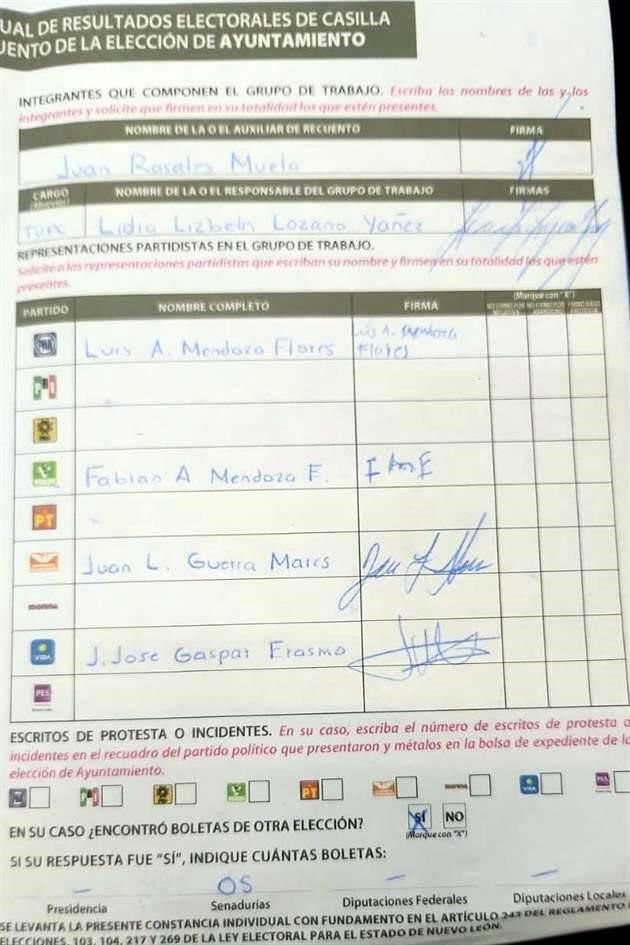 UAL DE RESULTADOS ELECTORALES DE CASILLA
UENTO DE LA ELECCIÓN DE AYUNTAMIENTO
INTEGRANTES QUE COMPONEN EL GRUPO DE TRABAJO. Escriba los nombres de las y los
integrantes y solicite que firmen en su totalidad los que estén presentes.
NOMBRE DE LA O EL AUXILIAR DE RECUENTO FIRMA
Juan Rosales Muela
CARGO NOMBRE DE LA O EL RESPONSABLE DEL GRUPO DE TRABAJO FIRMAS
Lidia Lizbeth Lozano Yañez
REPRESENTACIONES PARTIDISTAS EN EL GRUPO DE TRABAJO.
Solicite a las representaciones partidistas que escriban su nombre y firmen en su totalidad los que estén
presentes.
(Marque con "X")
PARTIDO NOMBRE COMPLETO FIRMA
PAN Luis A. Mendoza Flores Luis A. Mendoza
Flores
PRI
PRD
VERDE Fabian A Mendoza F. F A M F
PT
Juan L. Guerra Marcs
morena
VIDA J. Jose Gaspar Erasmo
PES
ESCRITOS DE PROTESTA O INCIDENTES. En su caso, escriba el número de escritos de protesta o
incidentes en el recuadro del partido político que presentaron y métalos en la bolsa de expediente de la
elección de Ayuntamiento.
PAN PRI PRD VERDE PT morena VIDA PES
EN SU CASO ¿ENCONTRÓ BOLETAS DE OTRA ELECCIÓN? SÍ NO
(Marque con "X")
SI SU RESPUESTA FUE "SÍ", INDIQUE CUÁNTAS BOLETAS:
— 05 — —
Presidencia Senadurías Diputaciones Federales Diputaciones Locales
SE LEVANTA LA PRESENTE CONSTANCIA INDIVIDUAL CON FUNDAMENTO EN EL ARTÍCULO 243 DEL REGLAMENTO
ELECCIONES, 103, 104, 217 Y 269 DE LA LEY ELECTORAL PARA EL ESTADO DE NUEVO LEÓN.